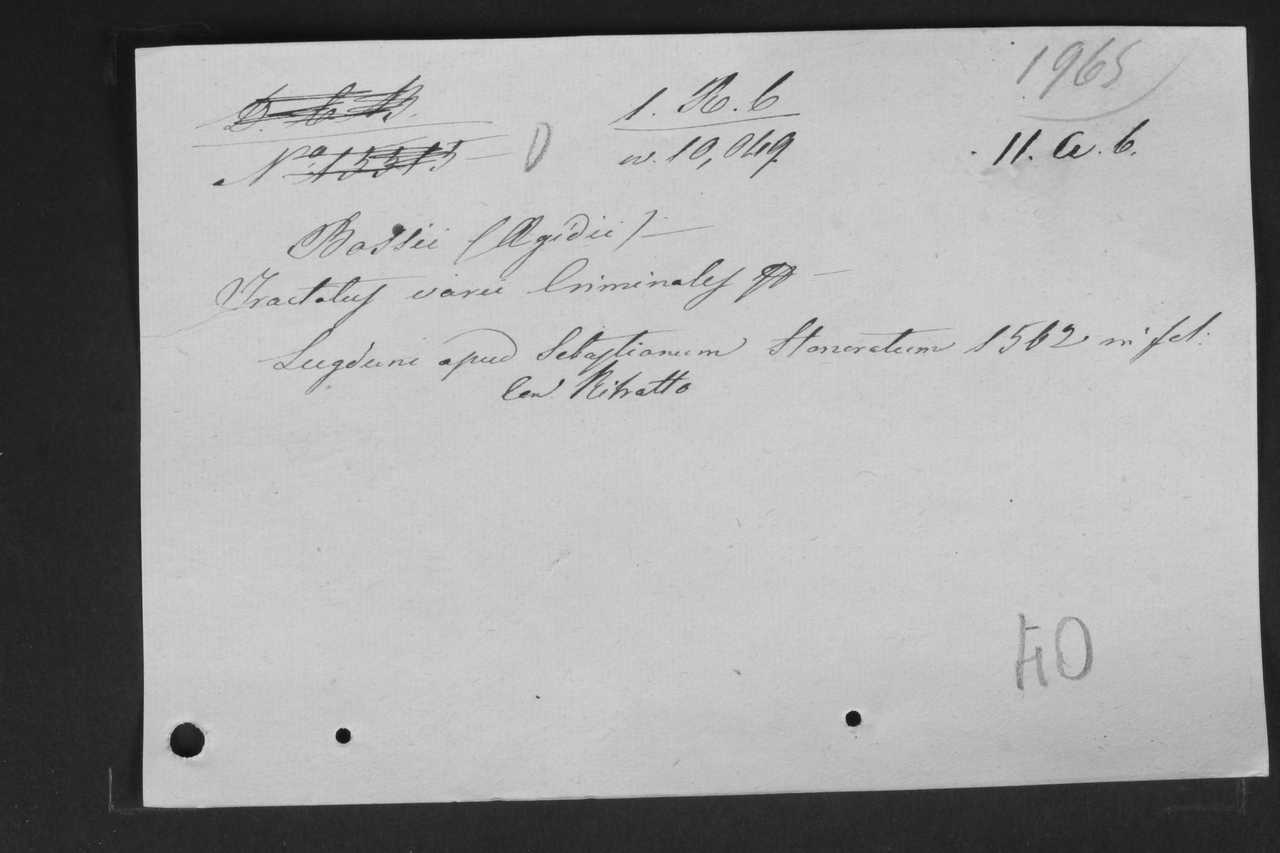 1965
D. C. B.
1. R. 6
No. 15315
D
n. 10,049.
11. a. 6.
Bossii (Ægidii)
Tractatus varii Criminales
Lugduni apud Sebastianum Honoratum 1562 in fol:
Con Ritratto
40